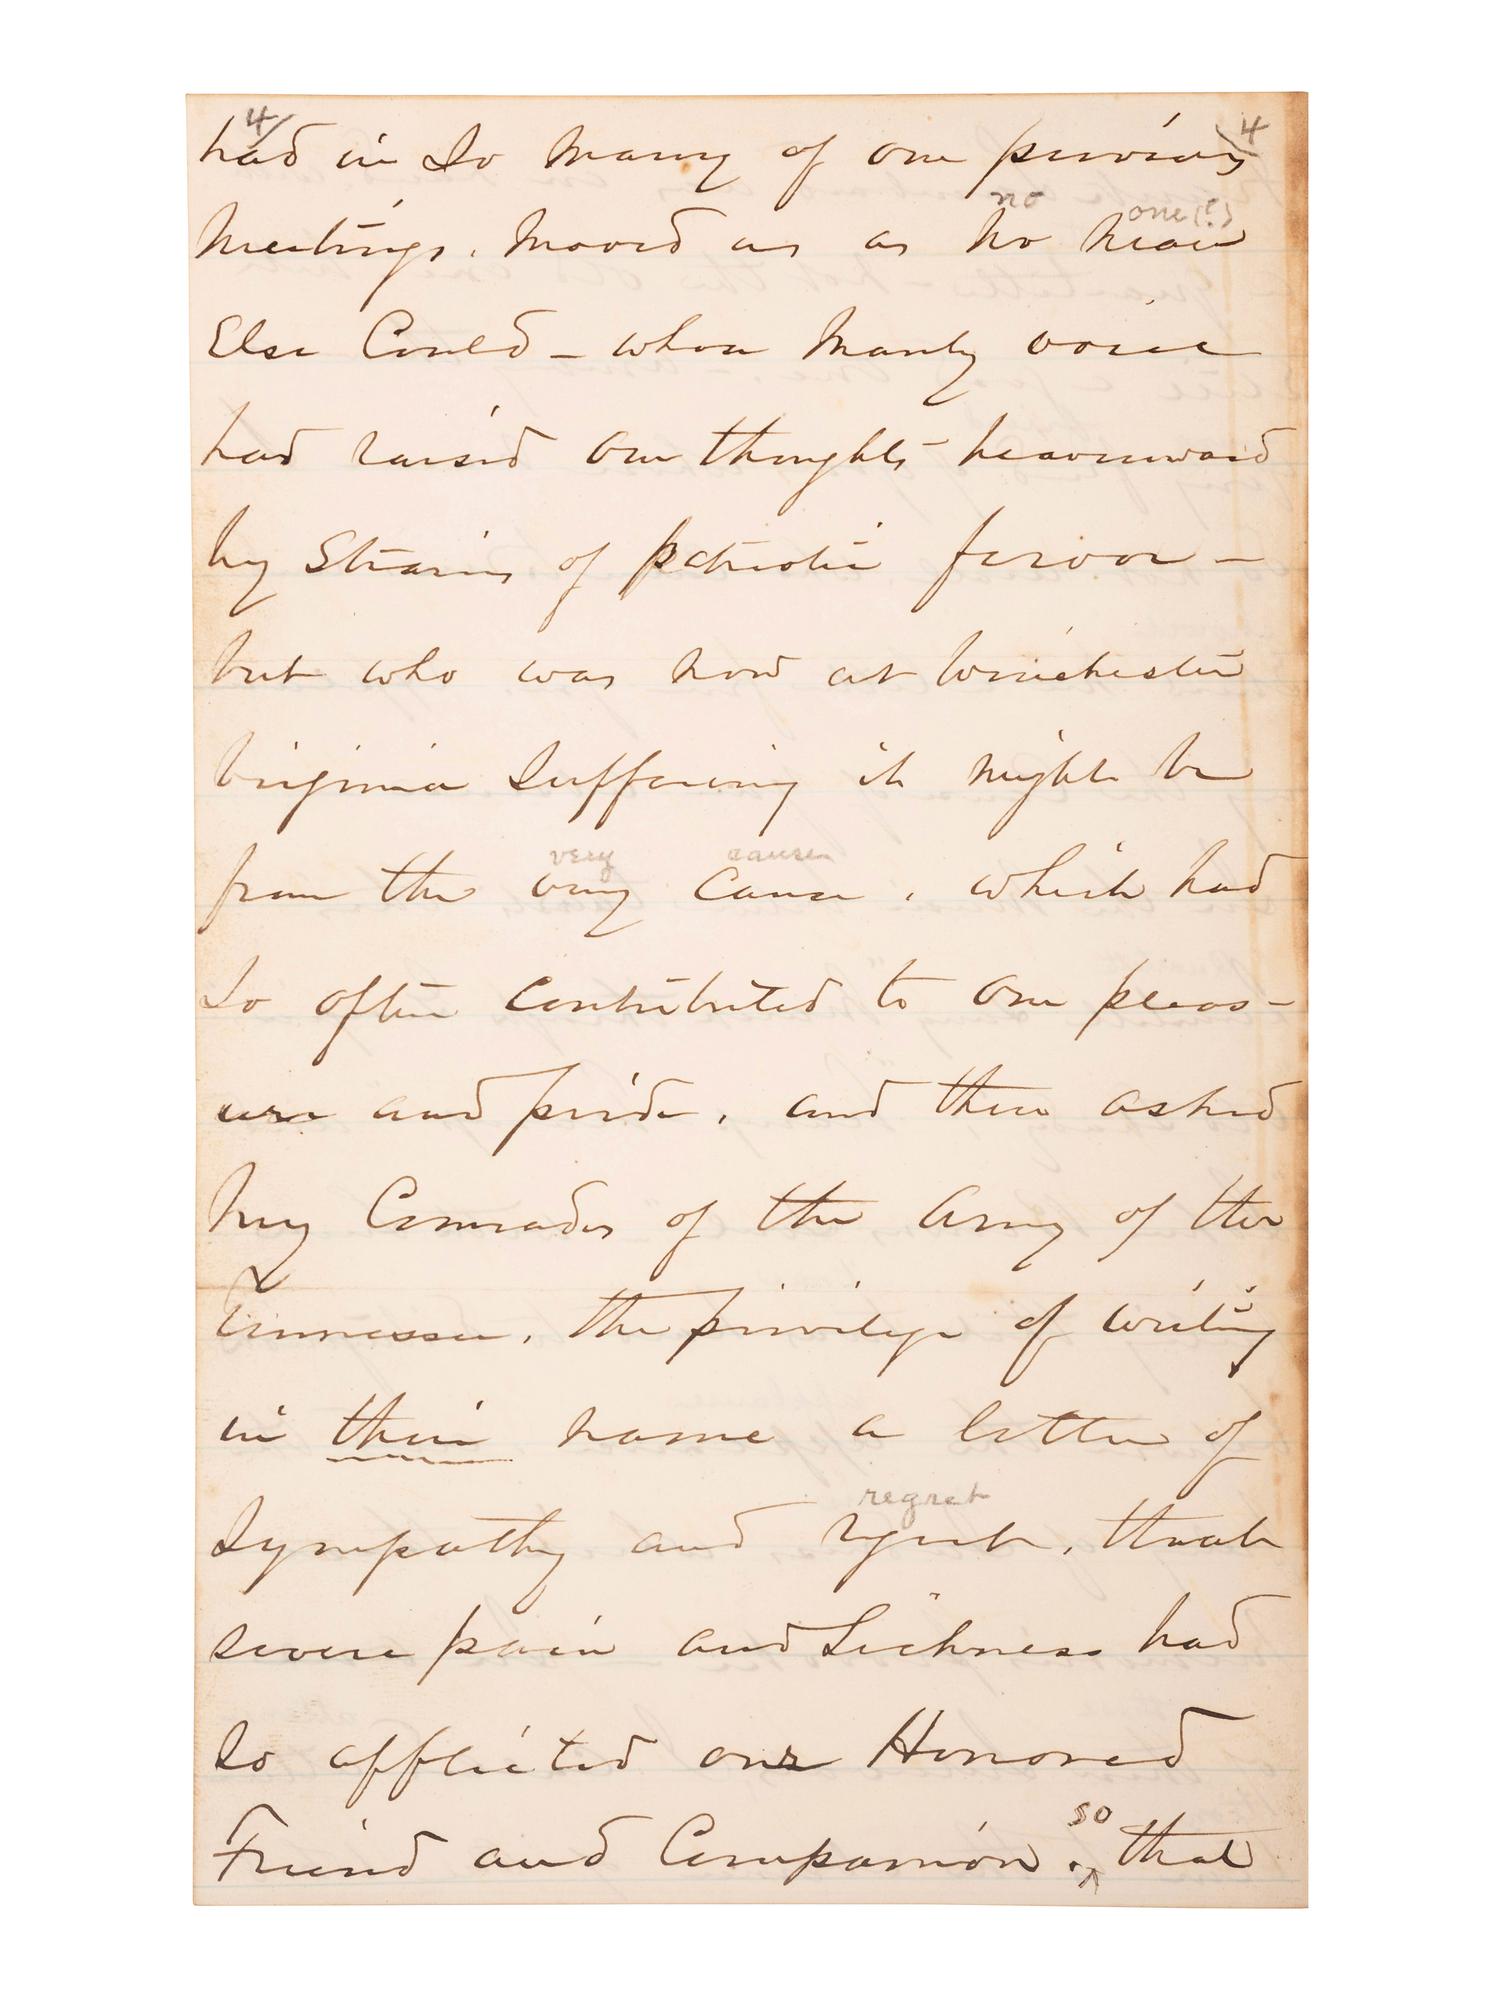 4/ \4
had in So Many of our previous
no one(?)
Meetings, Moved us as No Man
Else Could – whose Manly voice
had raised our thoughts heavenward
by Strains of patriotic fervor –
but who was now at Winchester
Virginia Suffering it might be
very cause
from the very Cause, which had
So often Contributed to our pleas-
ure and pride, and then asked
My Comrades of the Army of the
Tennessee, the privilege of writing
in their name a letter of
regret
Sympathy and regret, that
severe pain and Sickness had
So afflicted our Honored
so
Friend and Companion, ^ that